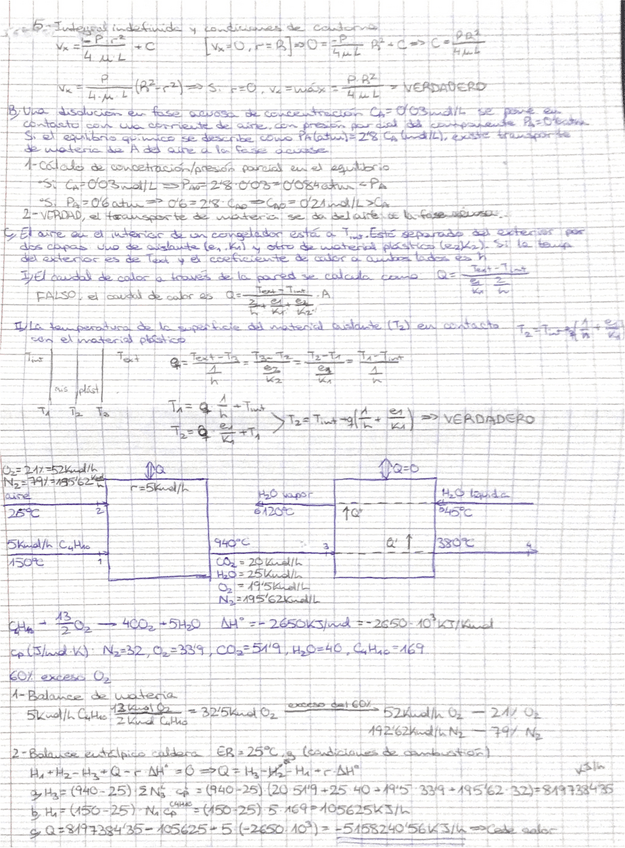 5- Integral indefinida y condiciones de contorno
Vx = -P·r²/4·μ·L + C [Vx=0, r=R] ⇒ 0 = -P/4μL R² + C ⇒ C = P·R²/4μL
Vx = P/4·μ·L (R²-r²) ⇒ Si r=0, Vx=máx = P·R²/4μL ⇒ VERDADERO
B. Una disolución en fase acuosa de concentración CA=0'03mol/L se pone en
contacto con una corriente de aire, con presión parcial del componente PA=0'6atm
Si el equilibrio químico se describe como PA(atm)=2'8 CA (mol/L), existe transporte
de materia de A del aire a la fase acuosa
1-Cálculo de concetración/presión parcial en el equilibrio
-Si CA=0'03mol/L ⇒ PA0=2'8·0'03=0'084atm < PA
-Si PA=0'6atm ⇒ 0'6=2'8·CA0 ⇒ CA0=0'21mol/L > CA
2-VERDAD, el transporte de materia se da del aire a la fase acuosa.
C. El aire en el interior de un congelador está a Tint. Está separado del exterior por
dos capas una de aislante (e1, K1) y otro de material plástico (e2, K2). Si la temp
del exterior es de Text y el coeficiente de calor a ambos lados es h
I) El caudal de calor a través de la pared se calcula como Q=
FALSO, el caudal de calor es Q= Text-Tint / 2/h + e1/K1 + e2/K2 · A
II) La temperatura de la superficie del material aislante (T2) en contacto T2=Tint+q(1/h + e1/K1)
con el material plástico
Tint Text q = Text-T3 / 1/h = T3-T2 / e2/K2 = T2-T1 / e1/K1 = T1-Tint / 1/h
ais plást
T1 T2 T3
T1 = q · 1/h + Tint
T2 = q · e1/K1 + T1 > T2=Tint+q(1/h + e1/K1) ⇒ VERDADERO
O2=21%=52Kmol/h Q Q=0
N2=79%=195'62Kmol/h r=5Kmol/h
aire H2O vapor H2O líquida
25ºC 2 6 120ºC ↑Q' 5 45ºC
5Kmol/h C4H10 940ºC Q' ↑ 380ºC
150ºC 1 3 4
CO2 = 20Kmol/h
H2O = 25Kmol/h
O2 = 19'5Kmol/h
N2=195'62Kmol/h
C4H10 + 13/2 O2 → 4CO2 + 5H2O ΔHº=-2650KJ/mol = -2650·10³KJ/Kmol
cp(J/mol·K) N2=32, O2=33'9, CO2=51'9, H2O=40, C4H10=169
60% exceso O2
1-Balance de materia
5Kmol/h C4H10 · 13 Kmol O2 / 2 Kmol C4H10 = 32'5Kmol O2 exceso del 60% → 52Kmol/h O2 — 21% O2
192'62Kmol/h N2 — 79% N2
2-Balance entálpico caldera ER=25ºC, g (condiciones de combustión)
H1+H2-H3+Q-r·ΔHº=0 ⇒ Q=H3-H2-H1+r·ΔHº
a) H3=(940-25) ΣNi cp = (940-25)(20·51'9+25·40+19'5·33'9+195'62·32)=8197384'35 KJ/h
b) H1=(150-25)·N1 cp C4H10 = (150-25)·5·169=105625KJ/h
c) Q=8197384'35-105625+5·(-2650·10³)=-5158240'56KJ/h ⇒ Cede calor